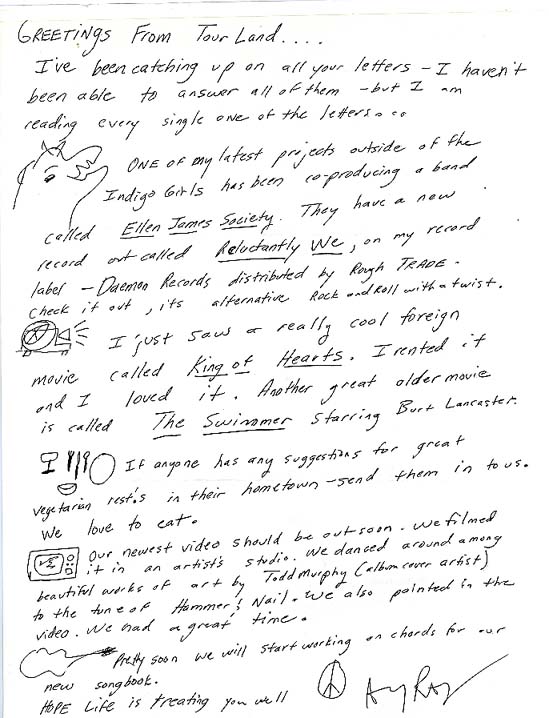 GREETINGS FROM TOUR LAND....
I've been catching up on all your letters - I haven't
been able to answer all of them - but I am
reading every single one of the letters....
ONE of my latest projects outside of the
Indigo Girls has been co-producing a band
called Ellen James Society. They have a new
record out called Reluctantly We, on my record
label - Daemon Records distributed by Rough TRADE.
Check it out, its alternative Rock and Roll with a twist.
I just saw a really cool foreign
movie called King of Hearts. I rented it
and I loved it. Another great older movie
is called The Swimmer starring Burt Lancaster.
If anyone has any suggestions for great
vegetarian rest.s in their hometown - send them in to us.
We love to eat.
Our newest video should be out soon. We filmed
it in an artist's studio. We danced around among
beautiful works of art by Todd Murphy (album cover artist)
to the tune of Hammer & Nail. We also painted in the
video. We had a great time.
Pretty soon we will start working on chords for our
new songbook.
HOPE Life is treating you well
Amy Ray